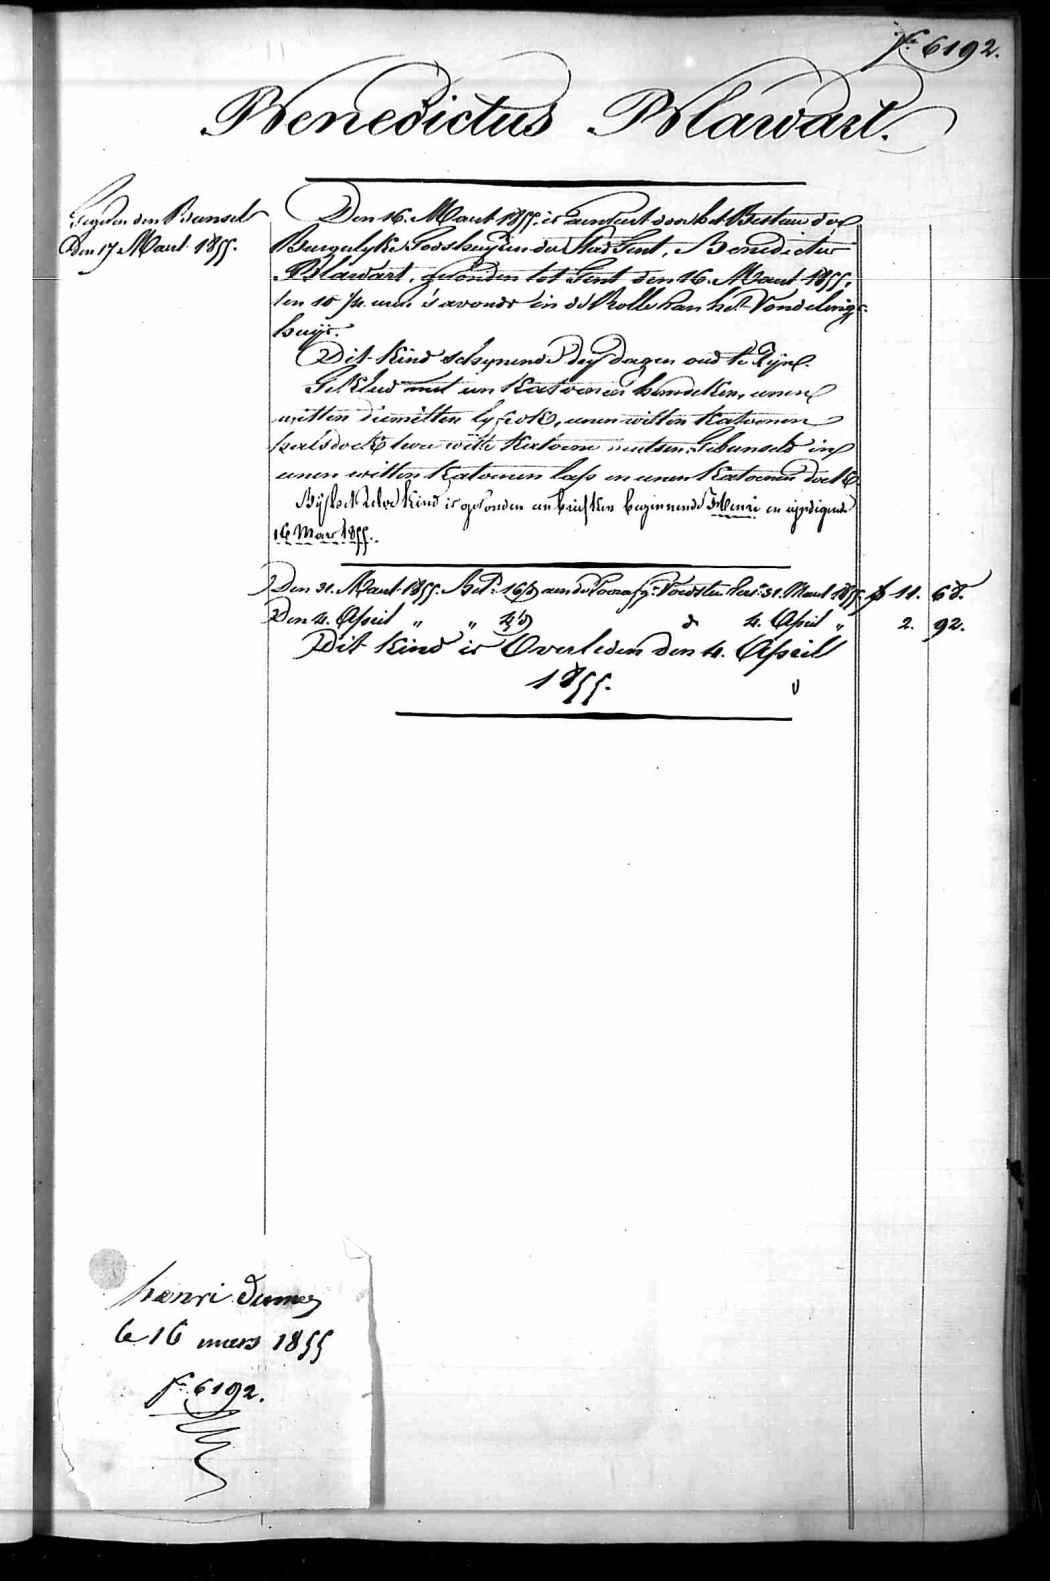 f.º 6192.
Benedictus Blawart.
Gegeven den Bunsel
Den 17 Maart 1855.
Den 16. Maart 1855. is aenveert door het Bestuer der
Burgelyke Godshuyzen der Stad Gent, Benedictus
Blawart, gevonden tot Gent den 16. Maart 1855,
ten 10 1/4 uren 's avonds in de Rolle van het Vondeling-
huijs.
Dit kind schynende dry dagen oud te Zyn.
Gekleed met een katoenen hemdeken, eenen
witten diemitten lyfrok, eenen witten katoenen
halsdoek, twee witte katoene mutsen, Gebunseld in
eenen witten katoenen laps en eenen katoenen doek.
By het zelve Kind is gevonden een briefken beginnende Henri en eyndigende
16 Mars 1855.
Den 31. Maart 1855. Bet. 16/d aen de Voorsz. Voedster tot 31. Maart 1855. f 11. 68.
Den 4. April „ „ 4/d d° 4. April „ 2. 92.
Dit Kind is Overleden den 4. April
1855.
henri dumez
le 16 mars 1855
f.º 6192.